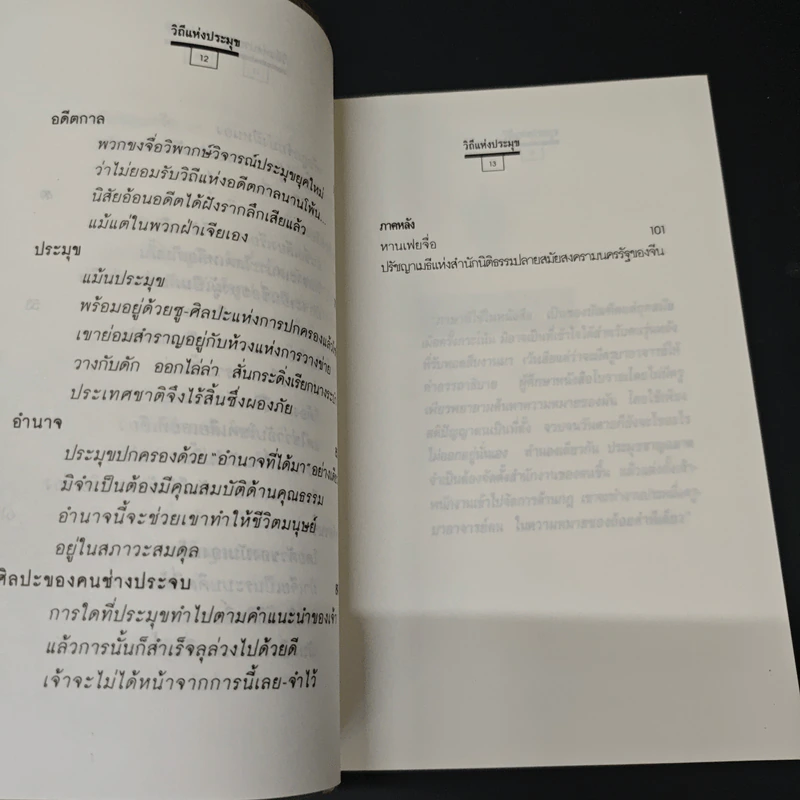 วิถีแห่งประมุข
12
อดีตกาล
พวกขงจื่อวิพากษ์วิจารณ์ประมุขยุคใหม่
ว่าไม่ยอมรับวิถีแห่งอดีตกาลนานโพ้น...
นิสัยอ้อนอดีตได้ฝังรากลึกเสียแล้ว
แม้แต่ในพวกฝ่าเจียเอง
ประมุข
แม้นประมุข
พร้อมอยู่ด้วยซู-ศิลปะแห่งการปกครองแล้วไซร้
เขาย่อมสำราญอยู่กับห้วงแห่งการวางข่าย
วางกับดัก ออกไล่ล่า สั่นกระดิ่งเรียกนางระบำ
ประเทศชาติจึงไร้สิ้นซึ่งผองภัย
อำนาจ
ประมุขปกครองด้วย "อำนาจที่ได้มา"
มิจำเป็นต้องมีคุณสมบัติด้านคุณธรรม
อำนาจนี้จะช่วยเขาทำให้ชีวิตมนุษย์
อยู่ในสภาวะสมดุล
ศิลปะของคนช่างประจบ
การใดที่ประมุขทำไปตามคำแนะนำของเจ้า
แล้วการนั้นก็สำเร็จลุล่วงไปด้วยดี
เจ้าจะไม่ได้หน้าจากการนี้เลย-จำไว้
วิถีแห่งประมุข
13
ภาคหลัง 101
หานเฟยจื่อ
ปรัชญาเมธีแห่งสำนักนิติธรรมปลายสมัยสงครามนครรัฐของจีน